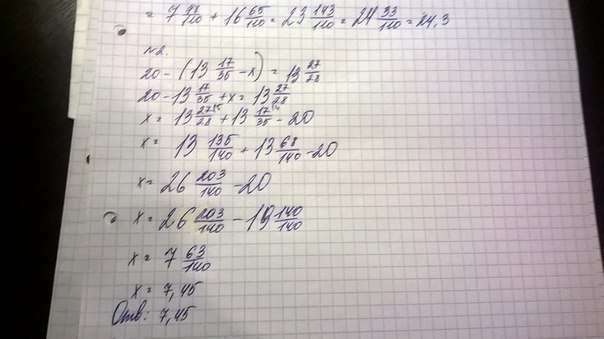 = 7 78/110 + 16 65/110 = 23 143/110 = 24 33/110 = 24,3
№2.
20 - (13 17/35 - x) = 13 27/28
20 - 13 17/35 + x = 13 27/28
x = 13 27/28 + 13 17/35 - 20
x = 13 135/140 + 13 68/140 - 20
x = 26 203/140 - 20
x = 26 203/140 - 19 140/140
x = 7 63/140
x = 7,45
Отв: 7,45